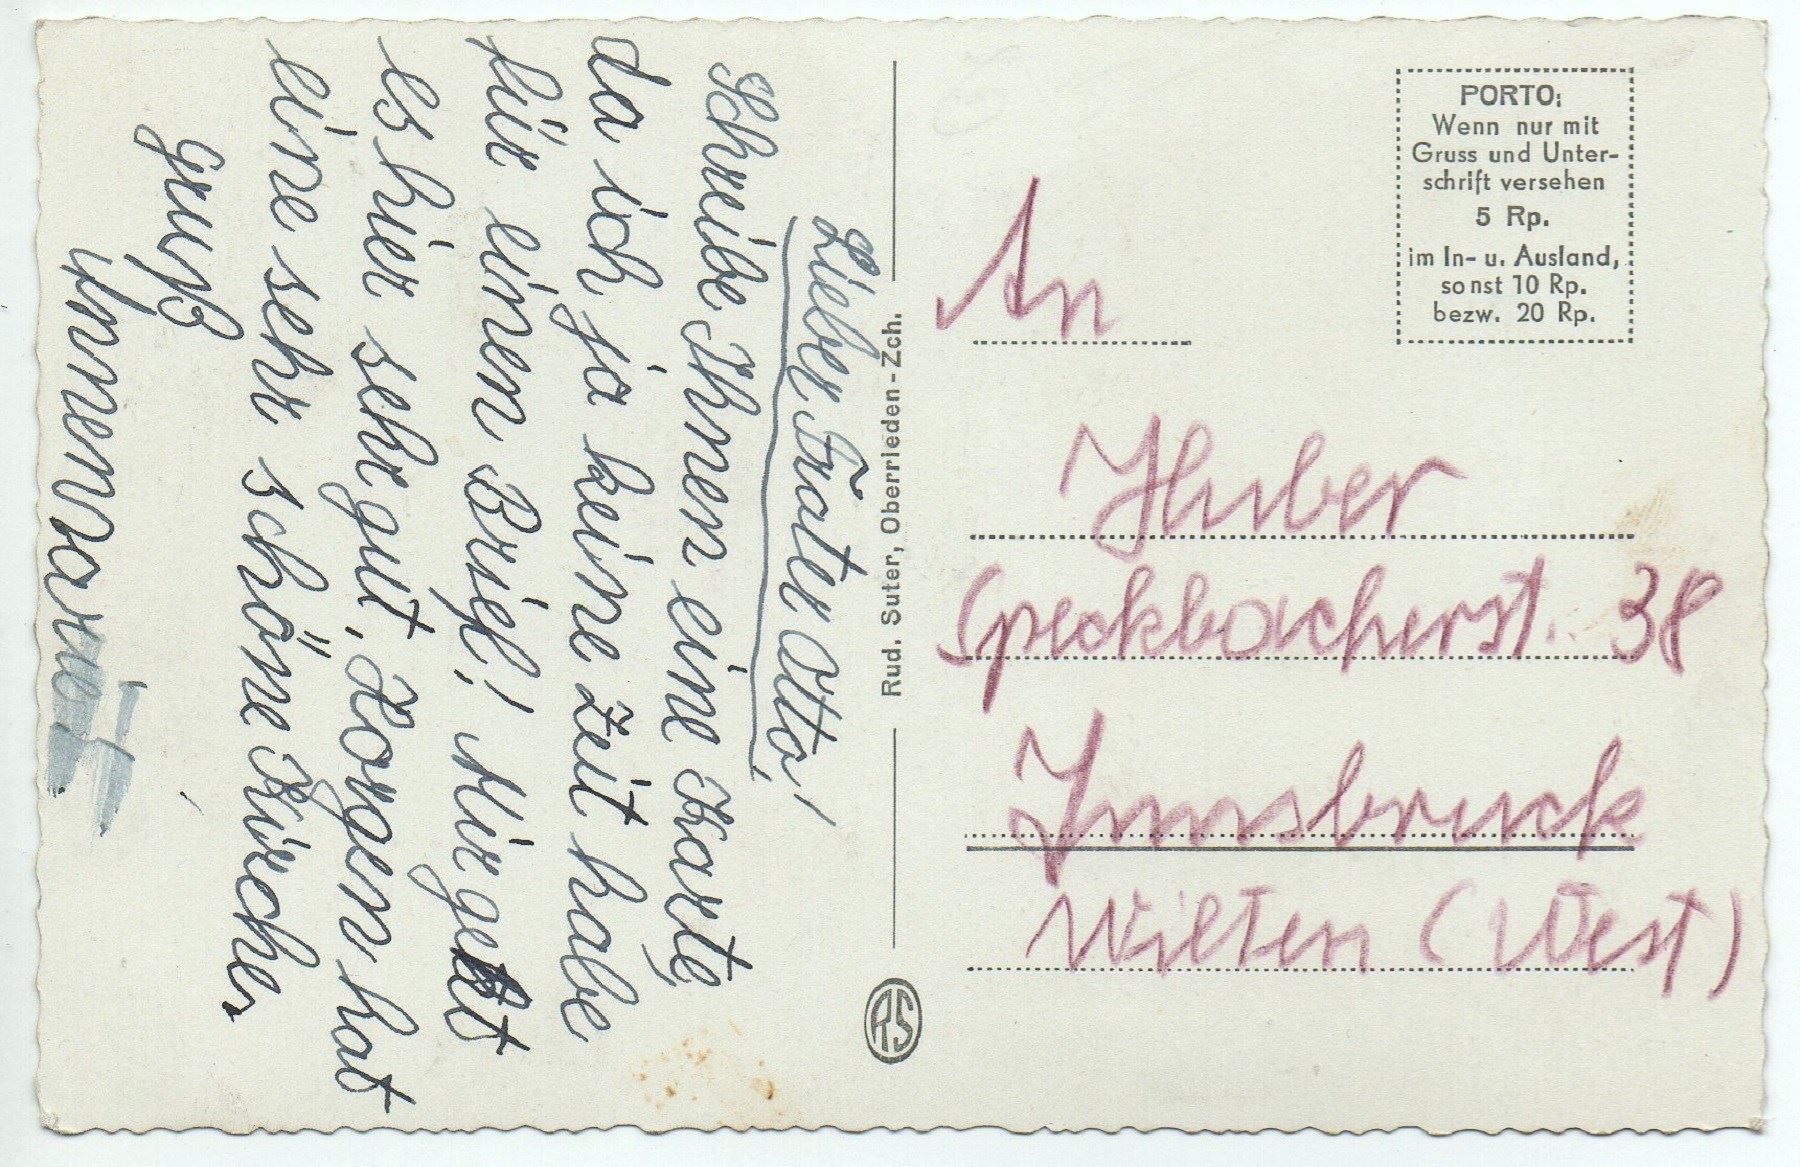 Lieber Frater Otto!
Schreibe Ihnen eine Karte,
da ich ja keine Zeit habe
für einen Brief! Mir geht
es hier sehr gut. Horgen hat
eine sehr schöne Kirche.
Gruß
Annemarie
Rud. Suter, Oberrieden-Zch.
RS
PORTO:
Wenn nur mit
Gruss und Unter-
schrift versehen
5 Rp.
im In- u. Ausland,
sonst 10 Rp.
bezw. 20 Rp.
An
Huber
Speckbacherst. 38
Innsbruck
Wilten (West)